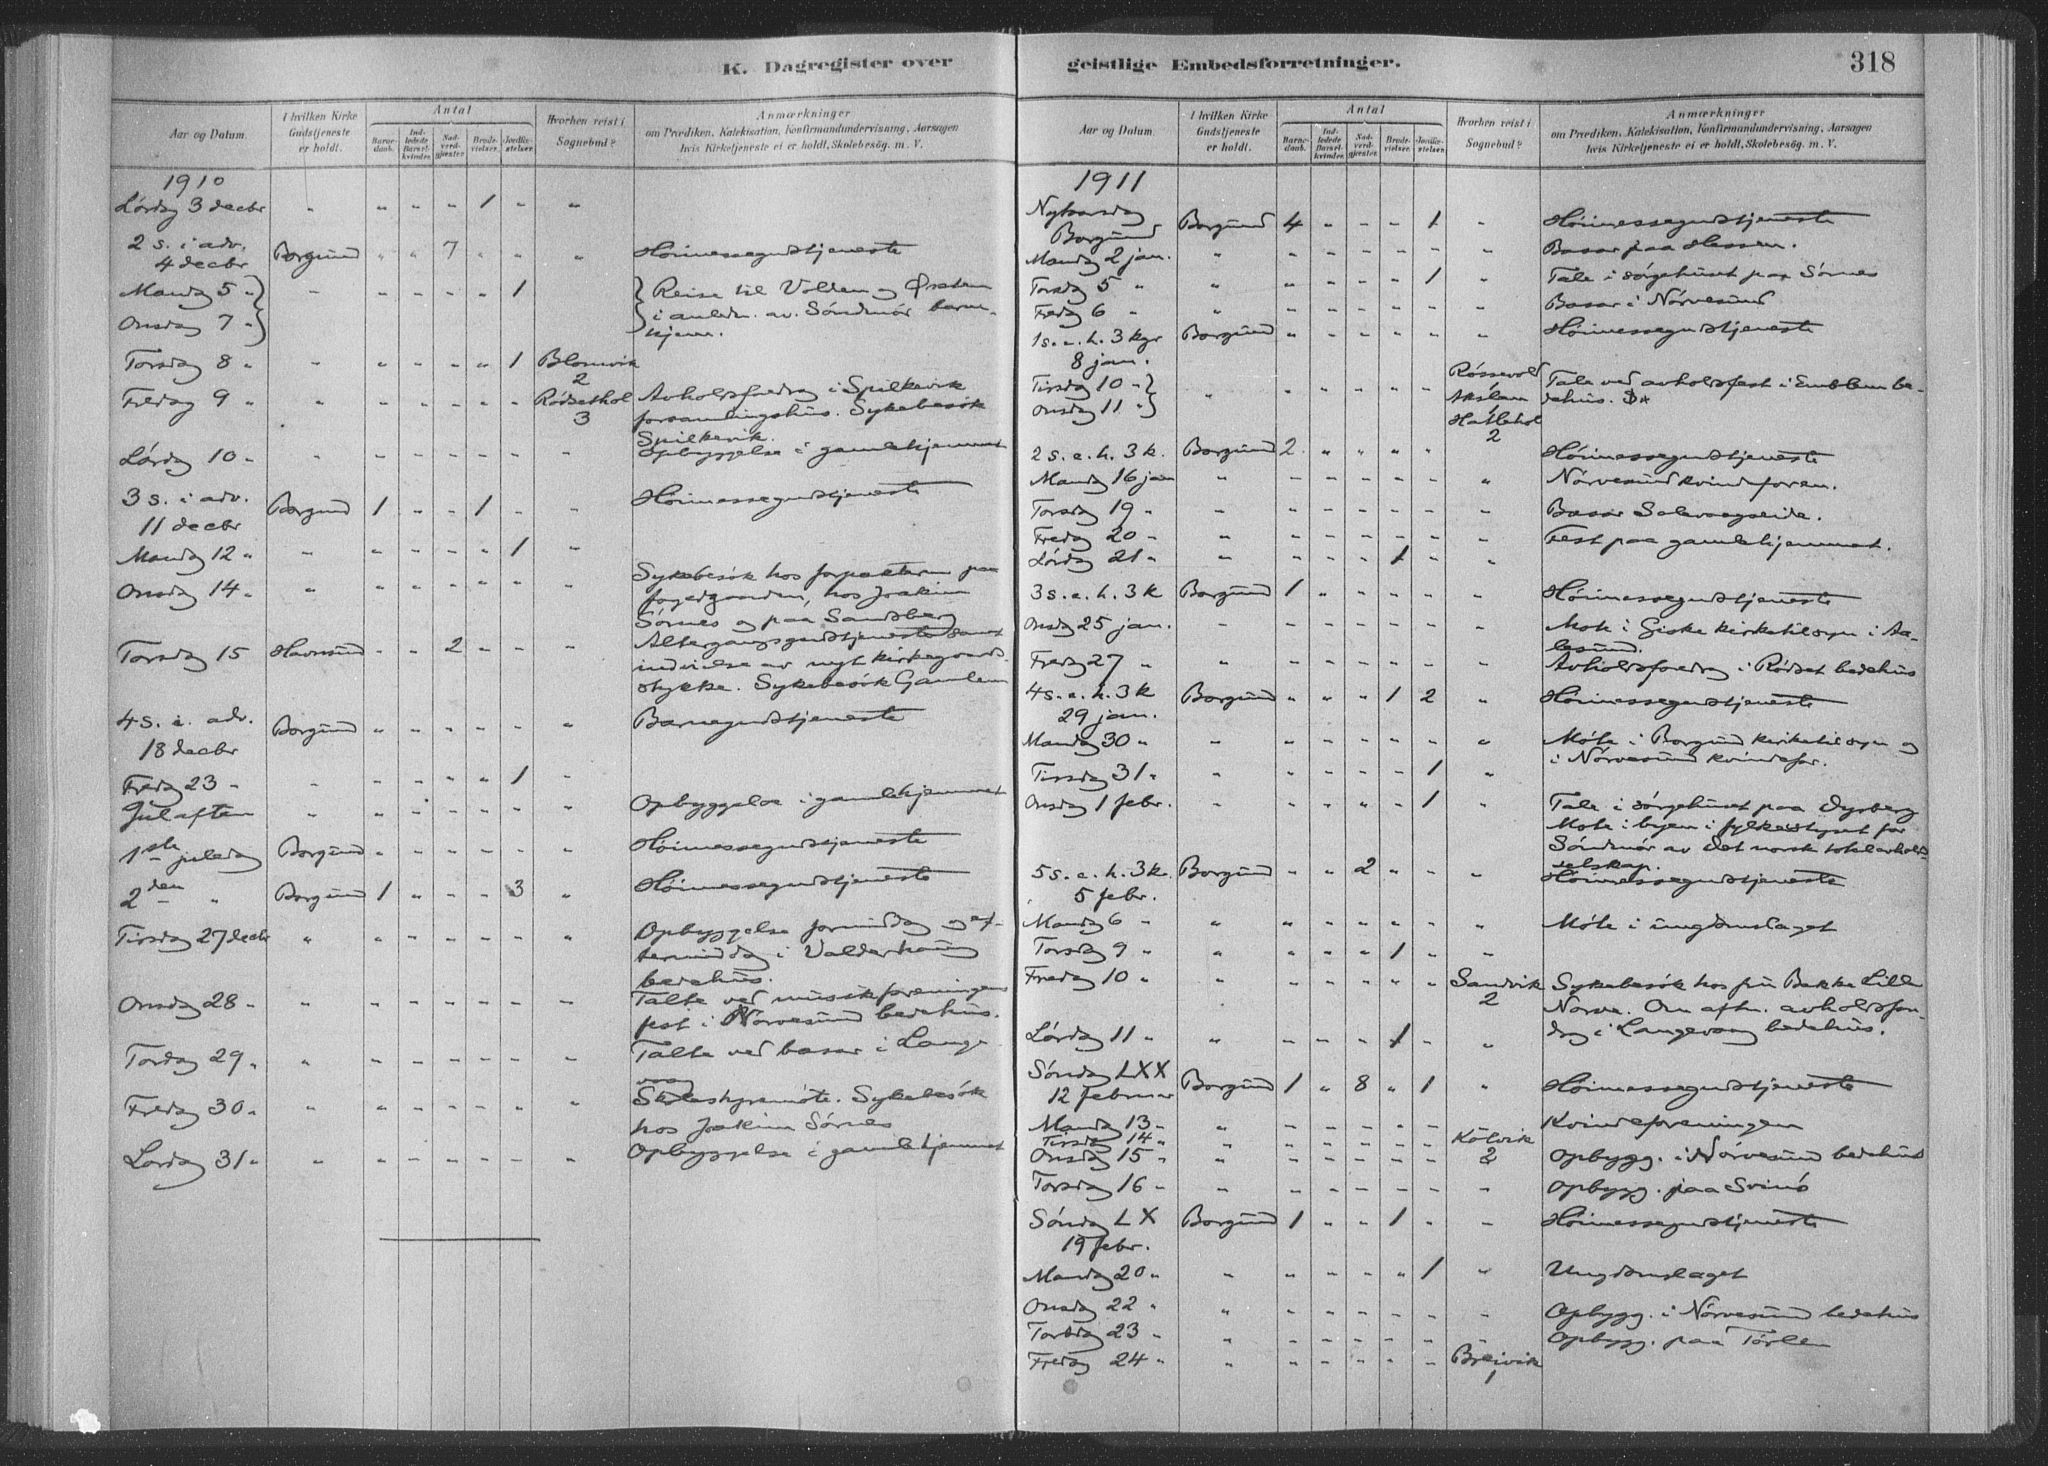 K. Dagregister over
Aar og Datum.
I hvilken Kirke Gudstjeneste er holdt.
Antal
Barnedaab.
Indledede Barselkvinder.
Nadverdgjester.
Brudevielser.
Jordfæstelser.
Hvorhen reist i Sognebud?
Anmærkninger
om Prædiken, Katekisation, Konfirmandundervisning, Aarsagen
hvis Kirketjeneste ei er holdt, Skolebesøg. m. V.
1910
Lørdag 3 decbr " " " " 1 " "
2 s. i adv. 4 decbr Borgund " " 7 " " " Höimessegudstjeneste
Mandag 5 " " " " " " 1 Reise til Volden og Ørsten
Onsdag 7 " i anledn. av Söndmör barnehjem.
Torsdag 8 " " " " " " 1 Blomvik 2
Fredag 9 " " " " " " " Rødsethol 3 Avholdsforedrag i Spilkevik
forsamlingshus. Sykebesök
Spilkevik.
Lørdag 10 " " " " " " " " Opbyggelse i gamlehjemmet
3 s. i adv. 11 decbr Borgund 1 " " 1 " " Höimessegudstjeneste
Mandag 12 " " " " " " 1 "
Onsdag 14 " " " " " " " " Sykebesök hos forpakteren paa
fogedgaarden, hos Joakim
Sörnes og paa Sandsberg
Torsdag 15 Havnsund " " 2 " " " Altergangsgudstjeneste samt
indvielse av nyt kirkegaards-
stykke. Sykebesök Gamlem
4 s. i adv. 18 decbr Borgund " " " " " " Barnegudstjeneste
Fredag 23 " " " " " " 1 "
Julaften " " " " " " " Opbyggelse i gamlehjemmet
1ste juledag Borgund " " " " " " Höimessegudstjeneste
2den " Borgund 1 " " " 3 " Höimessegudstjeneste
Tirsdag 27 decbr " " " " " " " Opbyggelse formiddag og ef-
termiddag i Valderhaug
bedehus.
Onsdag 28 " " " " " " " " Talte ved musikforeningens
fest i Nörvesund bedehus.
Torsdag 29 " " " " " " " " Talte ved basar i Lange-
vaag
Fredag 30 " " " " " " " " Skolestyremöte. Sykebesök
hos Joakim Sörnes
Lørdag 31 " " " " " " " " Opbyggelse i gamlehjemmet
geistlige Embedsforretninger.
318
Aar og Datum
I hvilken Kirke Gudstjeneste er holdt.
Antal
Barnedaab.
Indledede Barselkvinder.
Nadverdgjester.
Brudevielser.
Jordfæstelser.
Hvorhen reist i Sognebud?
Anmærkninger
om Prædiken, Katekisation, Konfirmandundervisning, Aarsagen
hvis Kirketjeneste ei er holdt, Skolebesøg. m. V.
1911
Nytaarsdag Borgund Borgund 4 " " " 1 " Höimessegudstjeneste
Mandag 2 jan. " " " " " " " Basar paa Hessen.
Torsdag 5 " " " " " " 1 " Tale i sörgehuset paa Sörnes
Fredag 6 " " " " " " " " Basar i Nörvesund
1 s. e. h. 3 kgr 8 jan. Borgund " " " " " " Höimessegudstjeneste
Tirsdag 10 " Onsdag 11 " " " " " " " Røssevold Akslen 1 Hatlehol 2 Tale ved avholdsfest i Emblem be-
dehus.
2 s. e. h. 3 k. Borgund 2 " " " " Höimessegudstjeneste
Mandag 16 jan " " " " " " " Nörvesund kvindeforen.
Torsdag 19 " " " " " " " " Basar Solevaagseide.
Fredag 20 " " " " " " " " Fest paa gamlehjemmet.
Lørdag 21 " " " " " 1 " "
3 s. e. h. 3 k Borgund 1 " " " " " Höimessegudstjeneste
Onsdag 25 jan. " " " " " " " Møte i Giske kirketilsyn i Aa-
lesund.
Fredag 27 " " " " " " " " Avholdsforedrag i Rödset bedehus
4 s. e. h. 3 k 29 jan. Borgund " " " 1 2 " Höimessegudstjeneste
Mandag 30 " " " " " " " " Möte i Borgund kirketilsyn og
i Nörvesund kvindefor.
Tirsdag 31 " " " " " " 1 "
Onsdag 1 febr. " " " " " 1 " Tale i sörgehuset paa Dysberg
Møte i byen i fylkestyret for
Söndmör av Det norsk totalavholds-
selskap.
5 s. e. h. 3 k. 5 febr. Borgund " " 2 " " " Höimessegudstjeneste
Mandag 6 " " " " " " " " Möte i ungdomslaget
Torsdag 9 " " " " " 1 " "
Fredag 10 " " " " " " " Sandvik 2 Sykebesök hos fru Bakke Lille
Nörve. Om aftn. avholdsfore-
drag i Langevaag bedehus.
Lørdag 11 " " " " " 1 "
Söndag LXX 12 februar Borgund 1 " 8 " 1 " Höimessegudstjeneste
Mandag 13 " " " " " " " " Kvindeforeningen
Tirsdag 14 " " " " " " " Kolvik 2
Onsdag 15 " " " " " " " Opbygg. i Nörvesund bedehus
Torsdag 16 " " " " " " " " Opbygg. paa Svinö
Söndag LX 19 febr. Borgund 1 " " 1 " " Höimessegudstjeneste
Mandag 20 " " " " " " 1 " Ungdomslaget
Onsdag 22 " " " " " " " " Opbygg. i Nörvesund bedehus
Torsdag 23 " " " " " " " " Opbygg. paa Törlen
Fredag 24 " " " " " " " Breivik 1